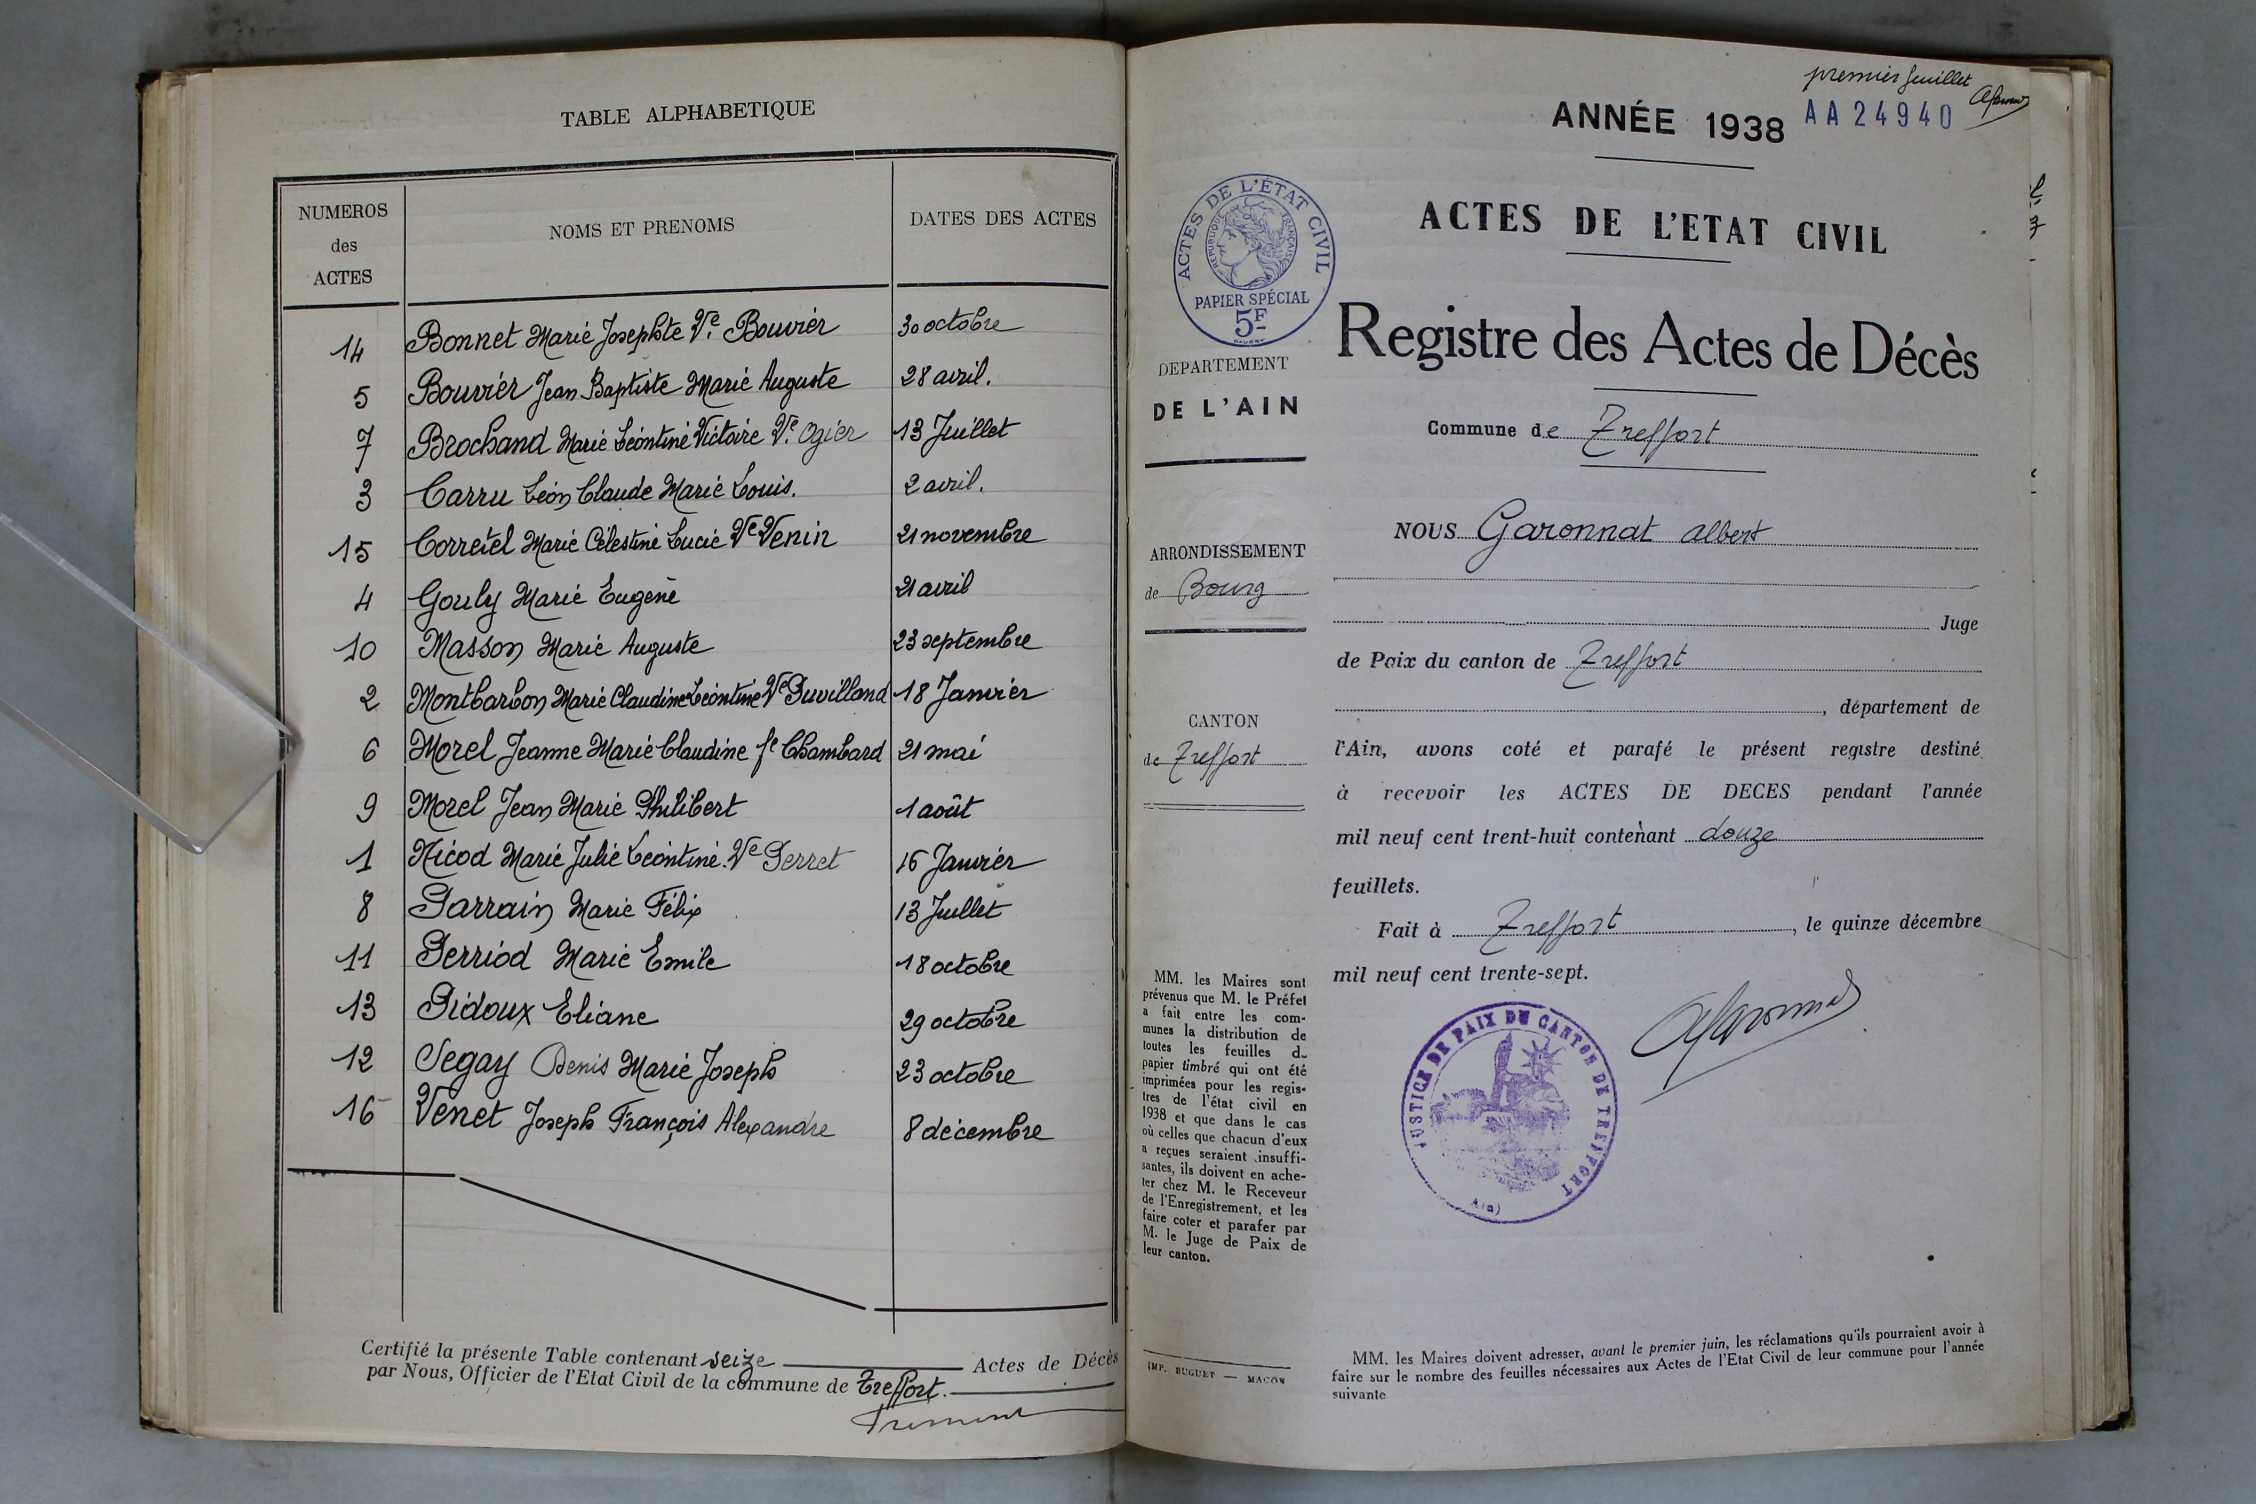 TABLE ALPHABETIQUE
NUMEROS des ACTES
NOMS ET PRENOMS
DATES DES ACTES
14 Bonnet Marie Josephte Ve Bouvier 30 octobre
5 Bouvier Jean Baptiste Marie Auguste 28 avril.
7 Brochand Marie Léontine Victoire Ve Ogier 13 Juillet
3 Carru Léon Claude Marie Louis. 2 avril.
15 Corretel Marie Célestine Lucie Ve Venin 21 novembre
4 Gouly Marie Eugène 21 avril
10 Masson Marie Auguste 23 septembre
2 Montbarbon Marie Claudine Léontine Ve Puvilland 18 Janvier
6 Morel Jeanne Marie Claudine fe Chambard 21 mai
9 Morel Jean Marie Philibert 1 août
1 Nicod Marie Julie Léontine Ve Perret 16 Janvier
8 Parrain Marie Félix 13 Juillet
11 Perriod Marie Emile 18 octobre
13 Pidoux Eliane 29 octobre
12 Segay Denis Marie Joseph 23 octobre
16 Venet Joseph François Alexandre 8 décembre
Certifié la présente Table contenant seize Actes de Décès
par Nous, Officier de l'Etat Civil de la commune de Treffort.
premier feuillet
ANNÉE 1938 AA 24940
ACTES DE L'ÉTAT CIVIL
RÉPUBLIQUE FRANÇAISE
PAPIER SPÉCIAL
5F
ACTES DE L'ETAT CIVIL
Registre des Actes de Décès
DEPARTEMENT
DE L'AIN
ARRONDISSEMENT
de Bourg
CANTON
de Treffort
MM. les Maires sont
prévenus que M. le Préfet
a fait entre les com-
munes la distribution de
toutes les feuilles de
papier timbré qui ont été
imprimées pour les regis-
tres de l'état civil en
1938 et que dans le cas
où celles que chacun d'eux
a reçues seraient insuffi-
santes, ils doivent en ache-
ter chez M. le Receveur
de l'Enregistrement, et les
faire coter et parafer par
M. le Juge de Paix de
leur canton.
IMP. BUGUET — MACON
Commune de Treffort
NOUS Garonnat Albert
Juge
de Paix du canton de Treffort
, département de
l'Ain, avons coté et parafé le présent registre destiné
à recevoir les ACTES DE DECES pendant l'année
mil neuf cent trent-huit contenant douze
feuillets.
Fait à Treffort, le quinze décembre
mil neuf cent trente-sept.
JUSTICE DE PAIX DU CANTON DE TREFFORT
(Ain)
MM. les Maires doivent adresser, avant le premier juin, les réclamations qu'ils pourraient avoir à
faire sur le nombre des feuilles nécessaires aux Actes de l'Etat Civil de leur commune pour l'année
suivante